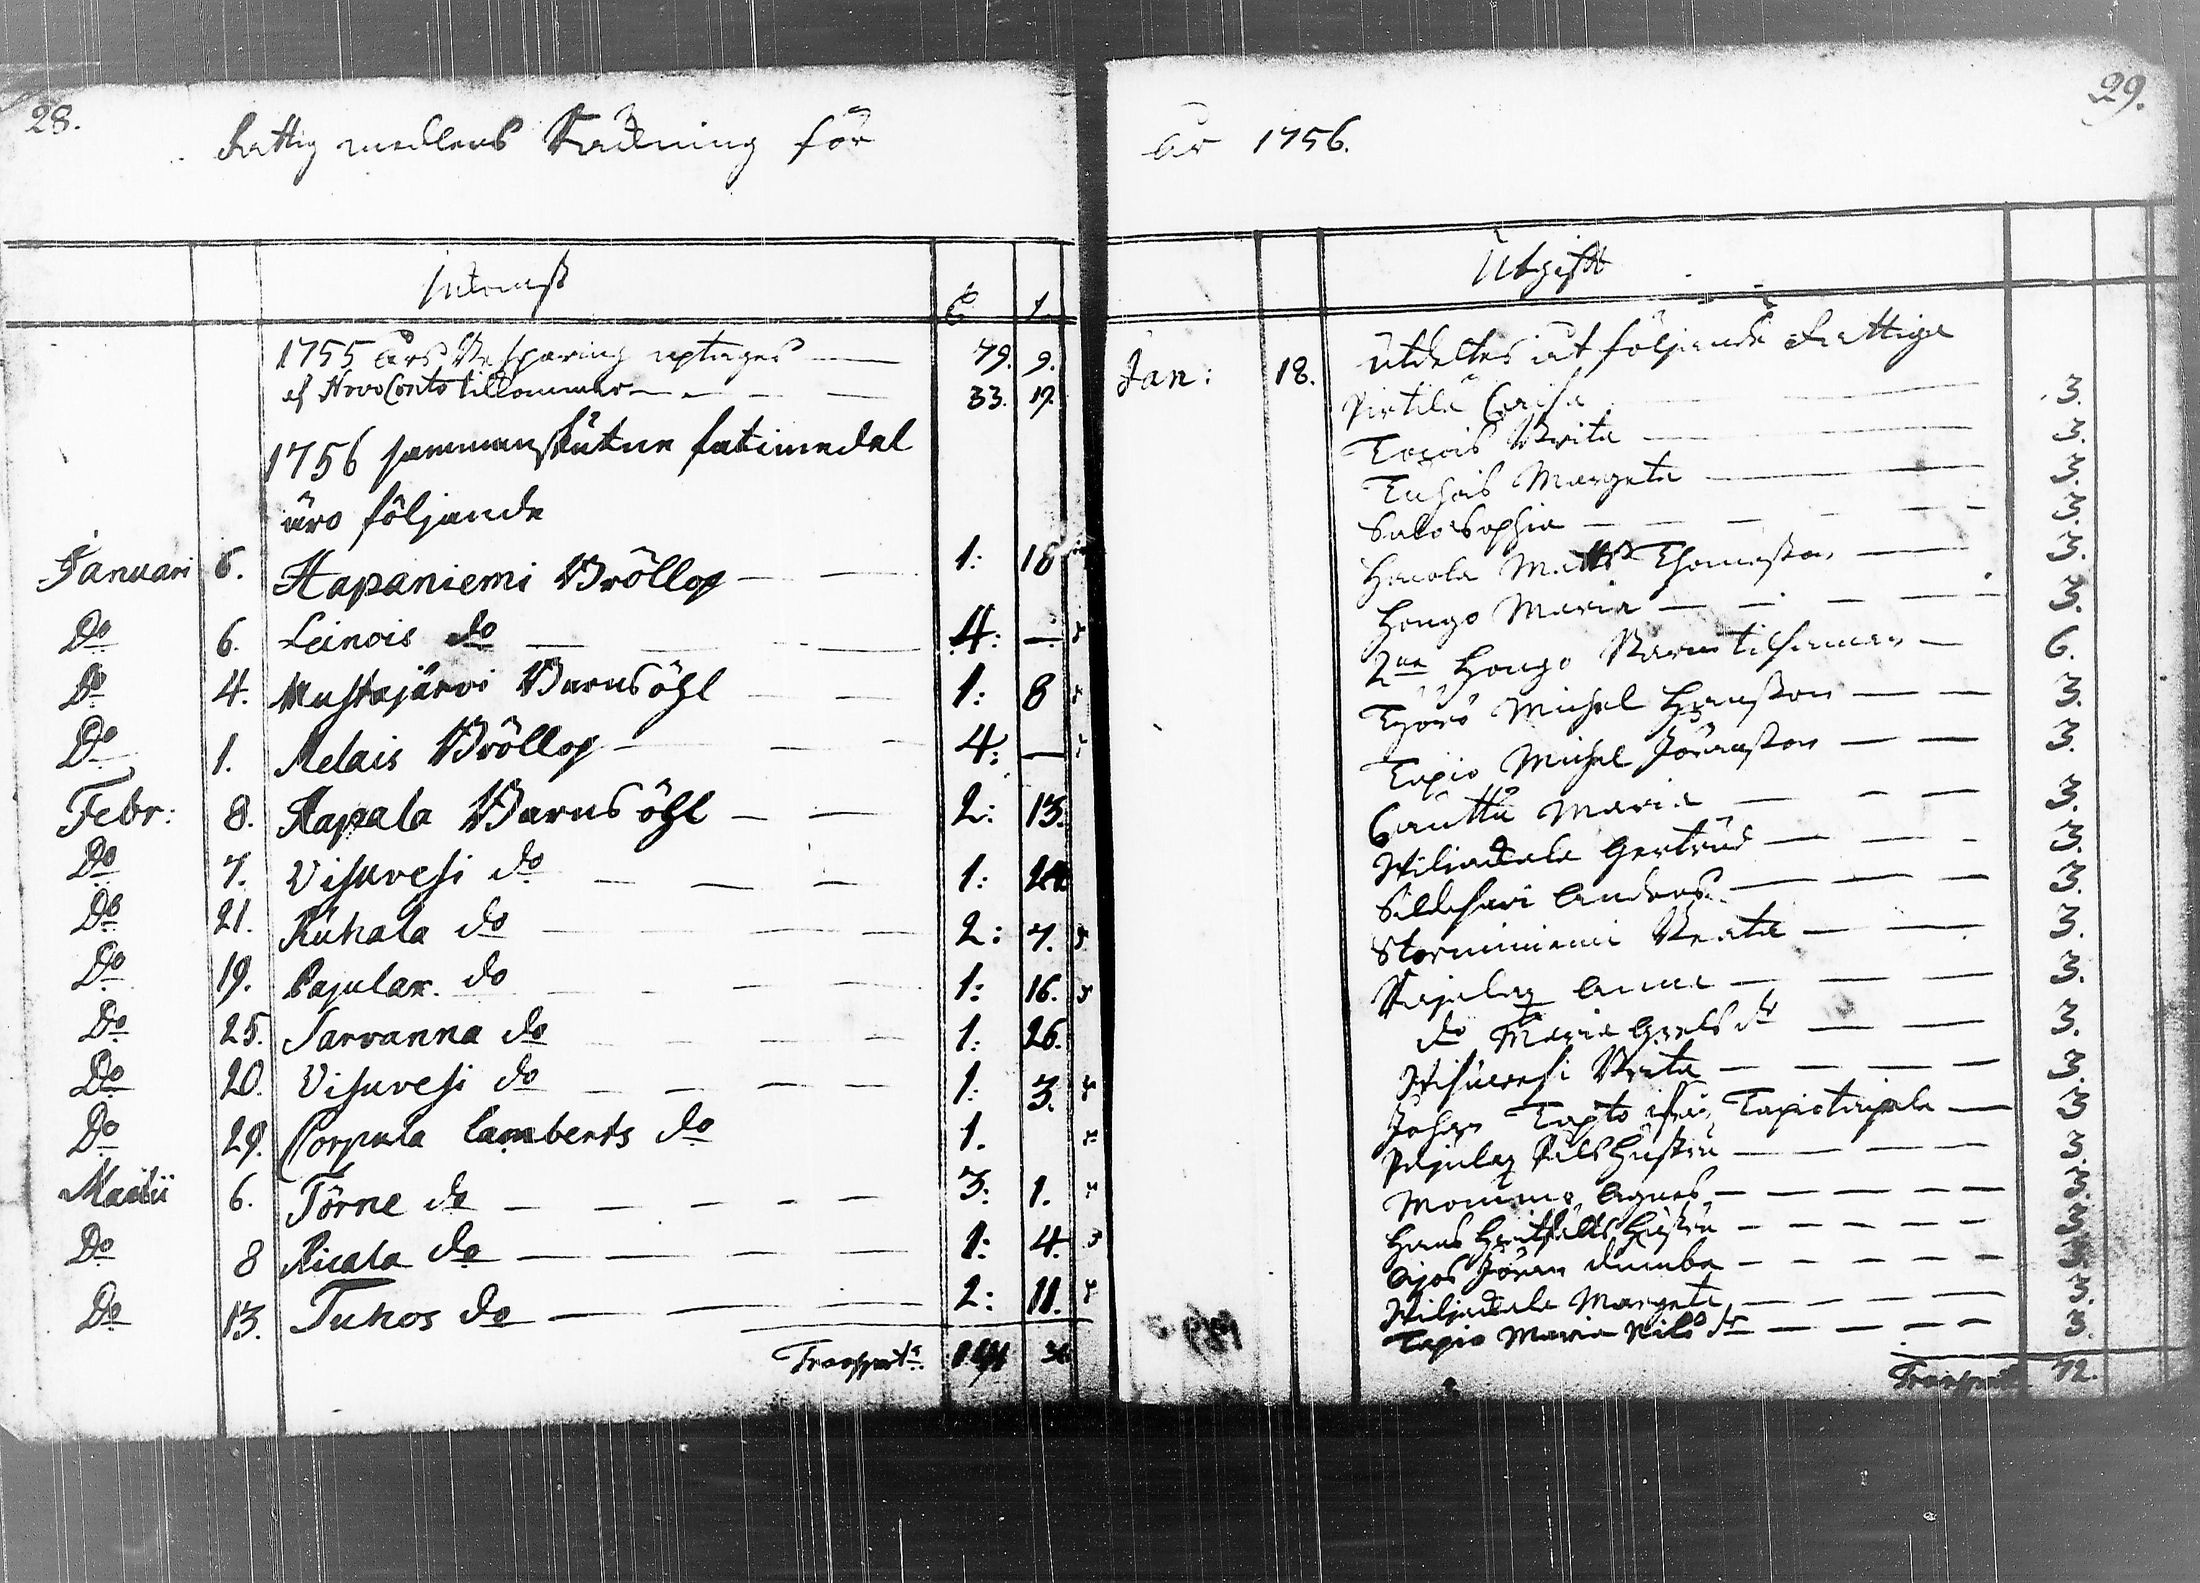 28.
Fattig medlens Räkning för
Inkomst
1755 års Besparing uptages 79. 9.
af Novo Conto tilkommer 33. 19.
1756 sammanskutne fatimedel
äro följande
Januari 6. Hapaniemi Bröllop 1: 18
Do 6. Leinois do 4: —
Do 4. Mustajärvi Barnsöhl 1: 8
Do 1. Melais Bröllop 4: —
Febr: 8. Kapala Barnsöhl 2: 13.
Do 7. Visuvesi do 1:
Do 21. Ruhala do 2: 7.
Do 19. Pajulax. do 1: 16.
Do 25. Jarvanna do 1: 26.
Do 20. Visuvesi do 1: 3.
Do 29. Corpula Lamberts do 1.
Martii 6. Törne do 3: 1.
Do 8 Ricala do 1: 4.
Do 13. Tuhos do 2: 11.
Transport
29.
År 1756.
Utgift
Jan: 18. utdeltes åt följande Fattige
Pirtilä Caisa 3.
Toxois Brita 3.
Tuhois Margeta 3.
Salo Sophia 3.
Hacola Matts Thomasson 3.
Hongo Maria 3.
2ne Hongo Barn tilsamman 6.
Työrö Michel Hansson 3.
Tapio Michel Jöransson 3.
Cauttu Maria 3.
Wiliackala Gertrud 3.
Sildesari Anders 3.
Storminiemi Beata 3.
Pajulax Anna 3.
do Maria Grels dr 3.
Wisuvesi Brita 3.
Johan Tapio ifrån Tapiotaipale 3.
Pajulax Påls hustru 3.
Mommo Agnes 3.
Hans hustru
Ajos Jöran dumbe
Wiljackala Margeta 3.
Tapio Maria Nils dr 3.
Transport 72.